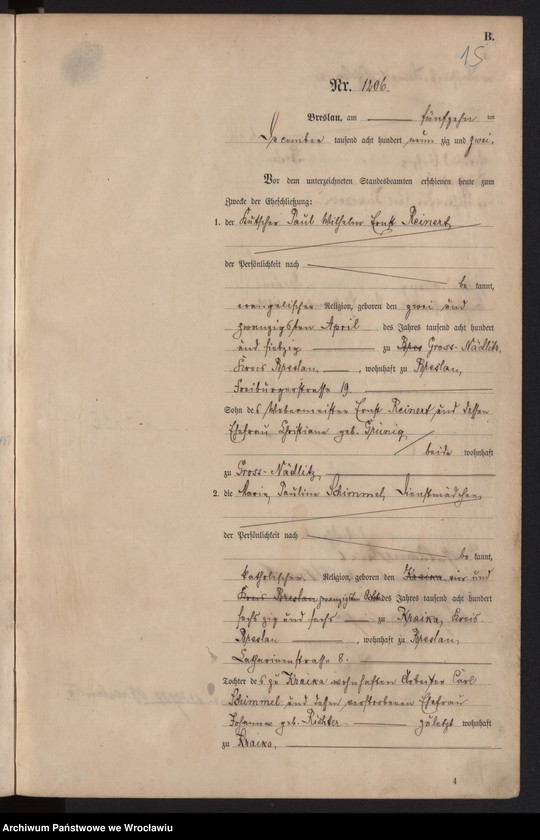 B.
15
Nr. 1206.
Breslau, am fünfzehn ten
December tausend acht hundert neun zig und zwei.
Vor dem unterzeichneten Standesbeamten erschienen heute zum
Zwecke der Eheschließung:
1. der Kutscher Paul Wilhelm Ernst Reinert
der Persönlichkeit nach
be kannt,
evangelischer Religion, geboren den zwei und
zwanzigsten April des Jahres tausend acht hundert
und siebzig zu Gross-Nädlitz,
Kreis Breslau, wohnhaft zu Breslau,
Freiburgerstrasse 19.
Sohn des Webermeister Ernst Reinert und dessen
Ehefrau Christiane geb. Grünig
beide wohnhaft
zu Gross-Nädlitz
2. die Marie Pauline Schimmel, Dienstmädchen
der Persönlichkeit nach
be kannt,
katholischer Religion, geboren den Kraika ein und
Kreis Breslau zwanzigsten des Jahres tausend acht hundert
sechs zig und sechs zu Kraika, Kreis
Breslau, wohnhaft zu Breslau,
Catharinenstrasse 8.
Tochter des zu Kraika wohnhaften Arbeiter Carl
Schimmel und dessen verstorbenen Ehefrau
Johanna geb. Richter zuletzt wohnhaft
zu Kraika,
4
Archiwum Państwowe we Wrocławiu